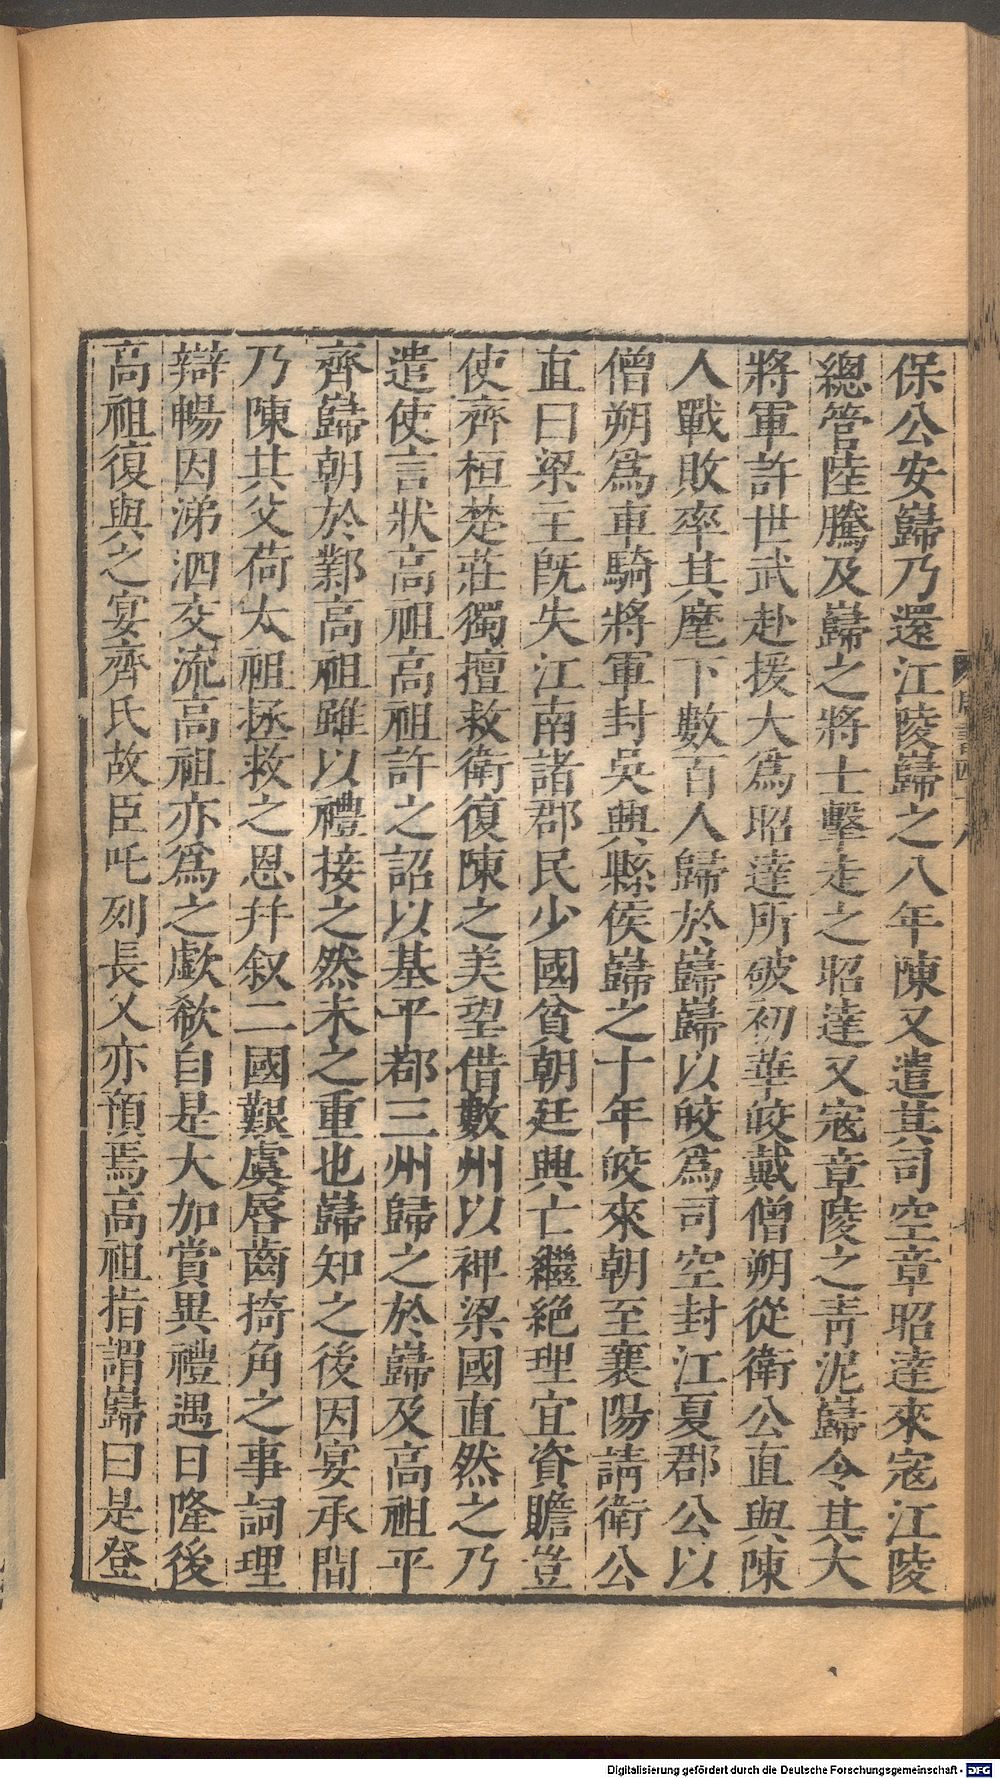 保公安巋乃還江陵巋之八年陳又遣其司空章昭達來寇江陵
總管陸騰及巋之將士擊走之昭達又寇章陵之靑泥巋令其大
將軍許世武赴援大爲昭達所破初華皎戴僧朔從衛公直與陳
人戰敗率其麾下數百人歸於巋巋以皎爲司空封江夏郡公以
僧朔爲車騎將軍封吳興縣侯巋之十年皎來朝至襄陽請衛公
直曰梁主旣失江南諸郡民少國貧朝廷興亡繼絕理宜資贍豈
使齊桓楚莊獨擅救衛復陳之美望借數州以裨梁國直然之乃
遣使言狀高祖高祖許之詔以基平鄀三州歸之於巋及高祖平
齊巋朝於鄴高祖雖以禮接之然未之重也巋知之後因宴承間
乃陳其父荷太祖拯救之恩幷叙二國艱虞唇齒掎角之事詞理
辯暢因涕泗交流高祖亦爲之歔欷自是大加賞異禮遇日隆後
高祖復與之宴齊氏故臣叱列長乂亦預焉高祖指謂巋曰是登
Digitalisierung gefördert durch die Deutsche Forschungsgemeinschaft - DFG